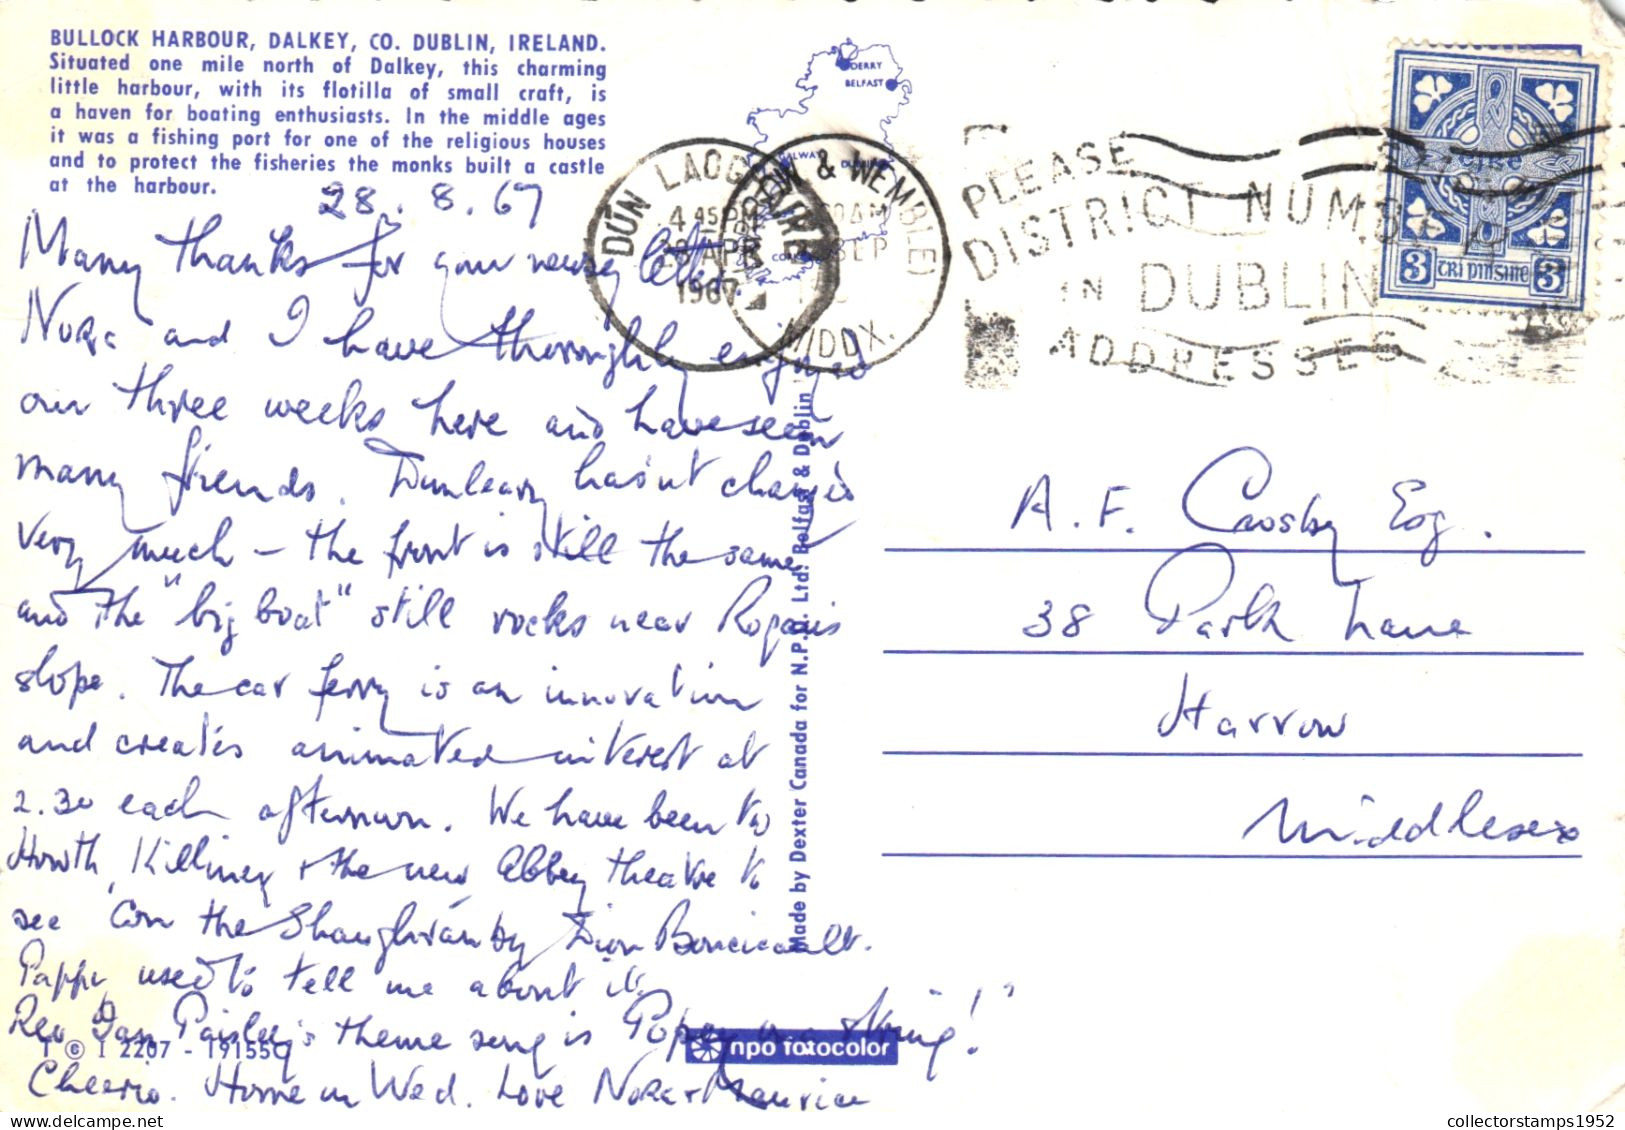 BULLOCK HARBOUR, DALKEY, CO. DUBLIN, IRELAND.
Situated one mile north of Dalkey, this charming
little harbour, with its flotilla of small craft, is
a haven for boating enthusiasts. In the middle ages
it was a fishing port for one of the religious houses
and to protect the fisheries the monks built a castle
at the harbour.
28.8.67
Many thanks for your newsy letter.
Nora and I have thoroughly enjoyed
our three weeks here and have seen
many friends. Dunleary hasn't changed
very much – the front is still the same
and the "big boat" still rocks near Rogan's
slope. The car ferry is an innovation
and creates animated interest at
2.30 each afternoon. We have been to
Howth, Killiney + the new Abbey theatre to
see 'Con the Shaughraun by Dion Boucicault.
Pappy used to tell me about it.
Rev Ian Paisley's theme song is "Popey on a string!"
Cheerio. Home on Wed. Love Nora + Maurice
T © I 2207 - 19155C
npo fotocolor
Made by Dexter Canada for N.P.O. Ltd. Belfast & Dublin
DERRY
BELFAST
DÚN LAOGHAIRE
4 45PM
28 APR
1967
HARROW & WEMBLEY
SEP
MIDDX.
PLEASE
DISTRICT NUMBER
IN DUBLIN
ADDRESSES
éire
3 TRÍ PINGINE 3
A. F. Crosby Esq.
38 Park Lane
Harrow
Middlesex
collectorstamps1952